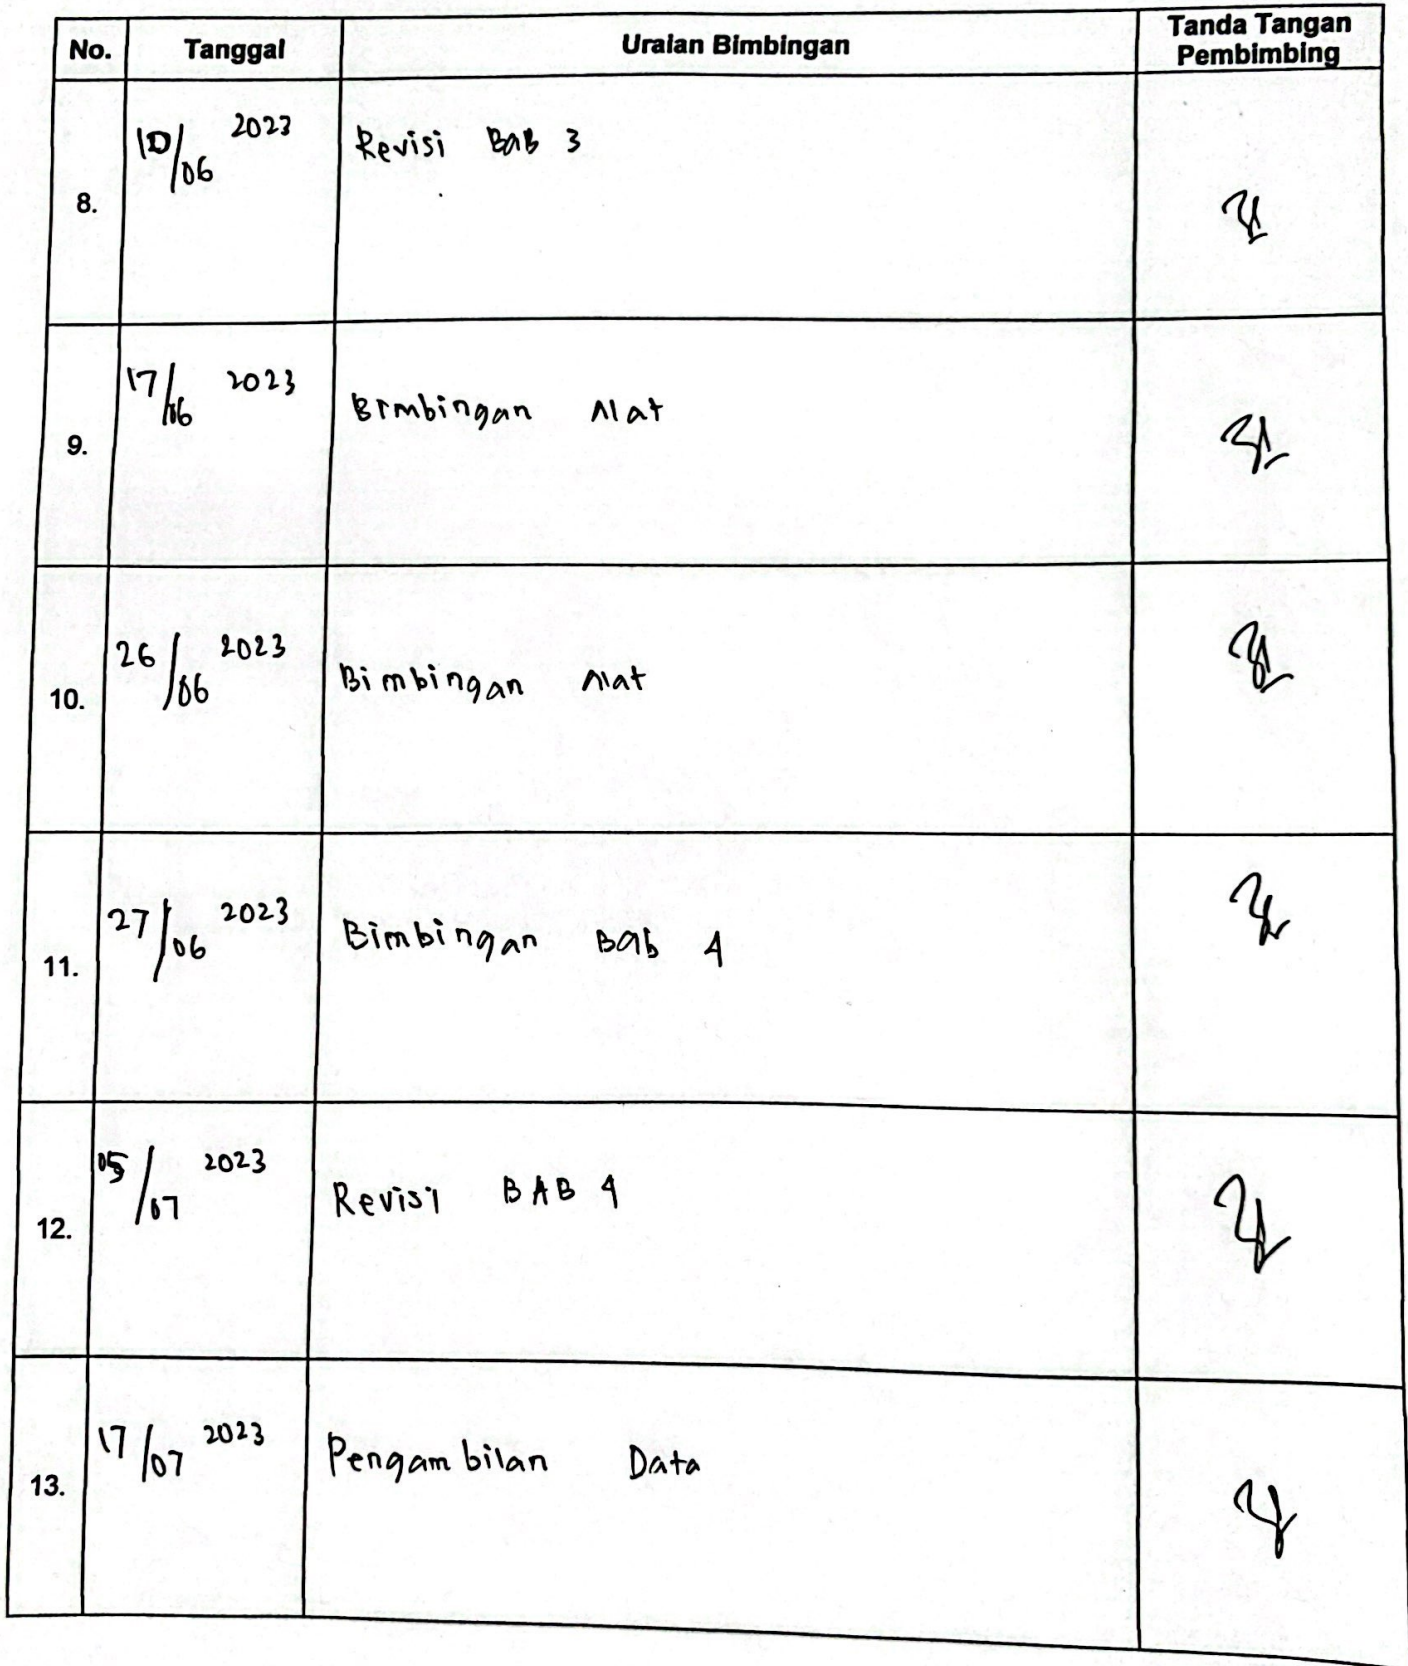 No. Tanggal Uraian Bimbingan Tanda Tangan
Pembimbing
8. 10/06 2023 Revisi BAB 3
9. 17/06 2023 Bimbingan Alat
10. 26/06 2023 Bimbingan Alat
11. 27/06 2023 Bimbingan Bab 4
12. 05/07 2023 Revisi BAB 4
13. 17/07 2023 Pengambilan Data